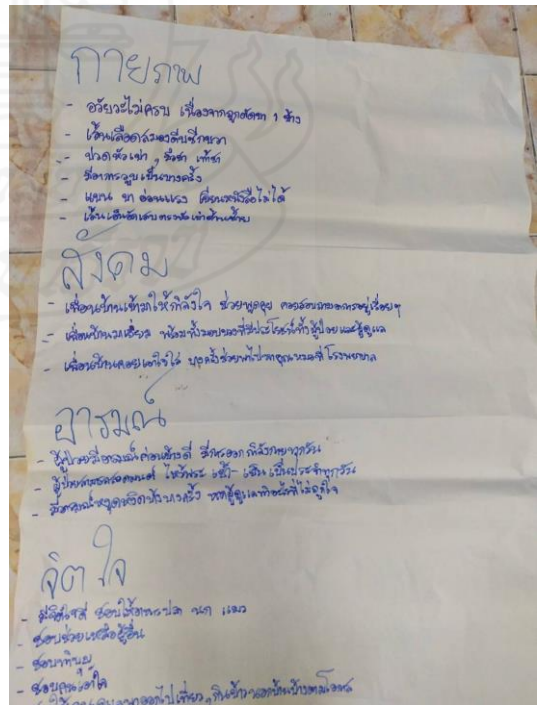 กายภาพ
- อวัยวะไม่ครบ เนื่องจากถูกตัดขา 1 ข้าง
- เส้นเลือดสมองตีบซีกขวา
- ปวดหัวเข่า, มือชา เท้าชา
- มีอาการวูบเป็นบางครั้ง
- แขน ขา อ่อนแรง เขียนหนังสือไม่ได้
- เส้นเอ็นอักเสบตรงข้อเท้าด้านซ้าย
สังคม
- เพื่อนบ้านเข้ามาให้กำลังใจ ช่วยพูดคุย คอยสอบถามอาการอยู่เรื่อยๆ
- เพื่อนบ้านมาเยี่ยม พร้อมทั้งมอบของที่มีประโยชน์ทั้งผู้ป่วยและผู้ดูแล
- เพื่อนบ้านคอยเอาใจใส่ บางครั้งช่วยพาไปหาคุณหมอที่โรงพยาบาล
อารมณ์
- ผู้ป่วยมีอารมณ์ค่อนข้างดี มีการออกกำลังกายทุกวัน
- ผู้ป่วยสวดมนต์ ไหว้พระ เช้า - เย็น เป็นประจำทุกวัน
- มีอารมณ์หงุดหงิดบ้างบางครั้ง หากผู้ดูแลทำอะไรที่ไม่ถูกใจ
จิตใจ
- มีจิตใจดี ชอบให้อาหารปลา นก แมว
- ชอบช่วยเหลือผู้อื่น
- ชอบทำบุญ
- ชอบคนเอาใจ
พาออกไปเที่ยว, กินข้าวนอกบ้านบ้างตามโอกาส